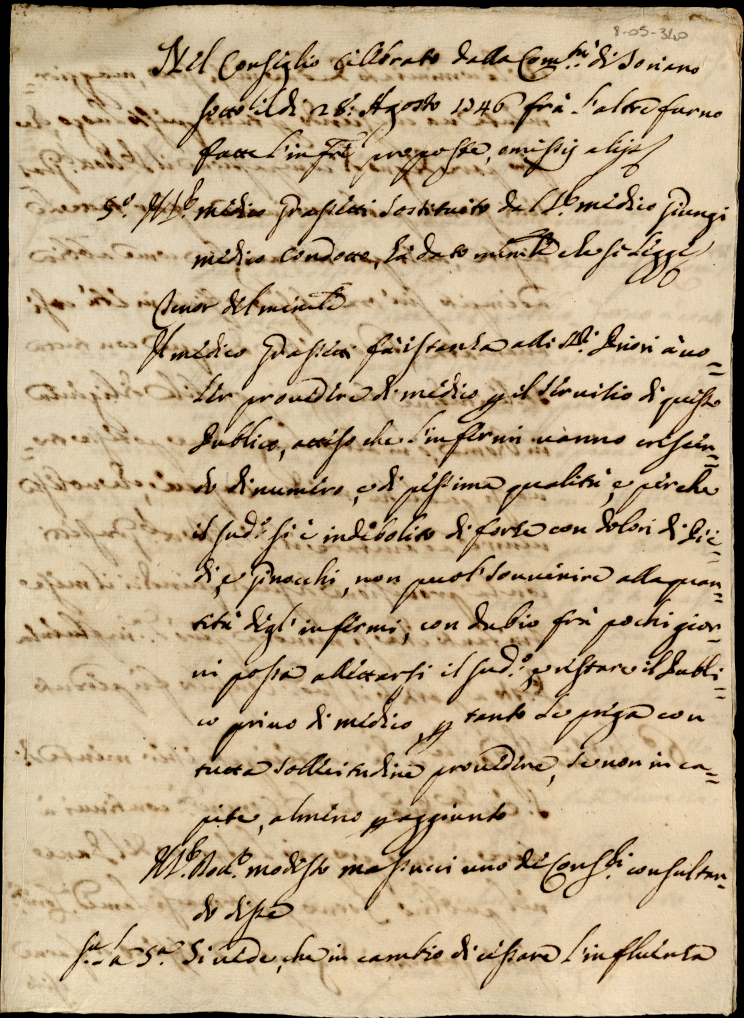 8-05-340
Nel Consiglio Cellebrato dalla Com.tà di Soriano
sotto il dì 28: Agosto 1746 frà l'altre furno
fatte l'infr.e proposte, omissis alijs
5.o Il Sig.r medico Grassetti sostituito dal Sig.r medico Giungi
medico Condotto, hà dato mem.le che si legge
Tenor del mem.le
Il medico Grassetti fà istanza alli SS.ri Priori à vo=
ler provedere di medico p il servitio di questo
Publico, atteso che l'infermi vanno crescen=
do di numero, e di pessima qualità, e perche
il sud.o si è indebolito di forze con dolori di Pie=
di, e Ginocchi, non puol souvenire alla quan=
tità degl'infermi, con dubio frà pochi gior=
ni possa allettarsi il sud.o, e restare il Publi=
co privo di medico, p tanto se prega con
tutta sollecitudine provedere, se non in ca=
pite, almeno p aggiunto
Il Sig.r Dod.e modesto massucci uno de Cons.ri consultan=
do disse
S.a la 5.a Si vede, che in cambio di cessare l'influenza